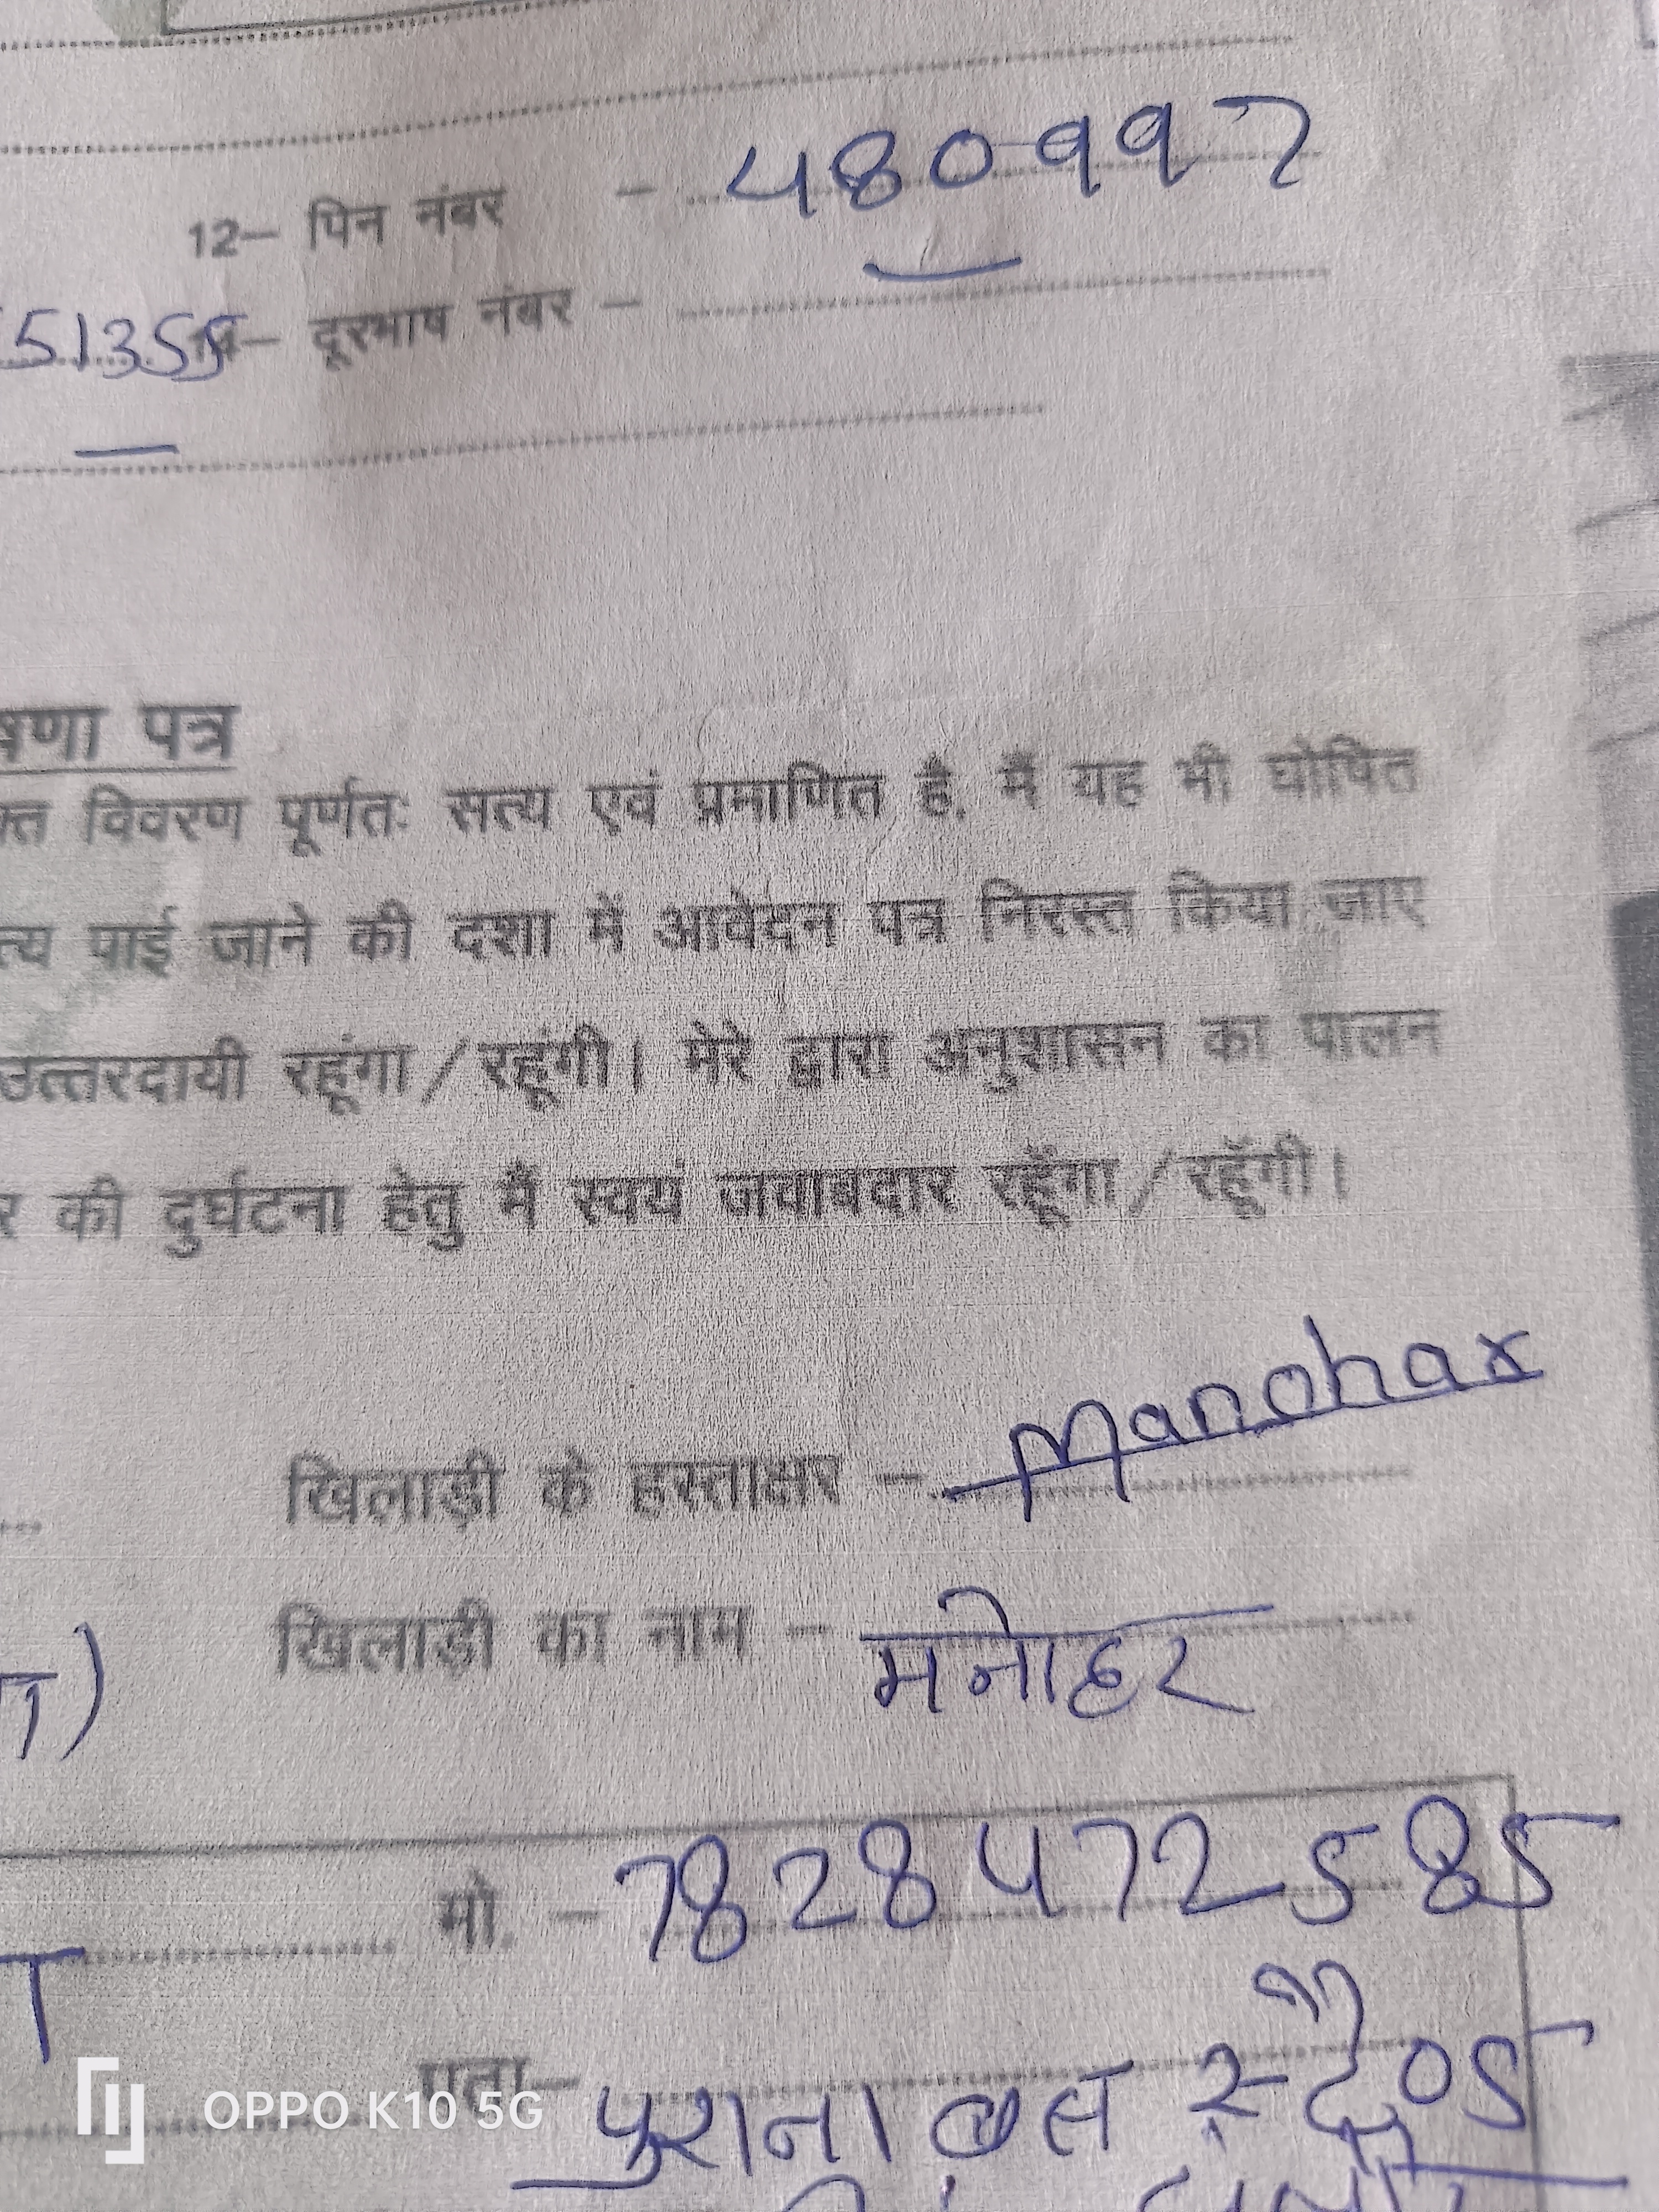 12– पिन नंबर – 480997
51355 14– दूरभाष नंबर –
षणा पत्र
क्त विवरण पूर्णतः सत्य एवं प्रमाणित है. मैं यह भी घोषित
त्य पाई जाने की दशा में आवेदन पत्र निरस्त किया जाए
उत्तरदायी रहूंगा/रहूंगी। मेरे द्वारा अनुशासन का पालन
र की दुर्घटना हेतु मैं स्वयं जवाबदार रहूँगा/रहूँगी।
खिलाड़ी के हस्ताक्षर – Manohar
खिलाड़ी का नाम – मनोहर
मो. – 7828472585
पता– पुराना बस स्टैण्ड
OPPO K10 5G